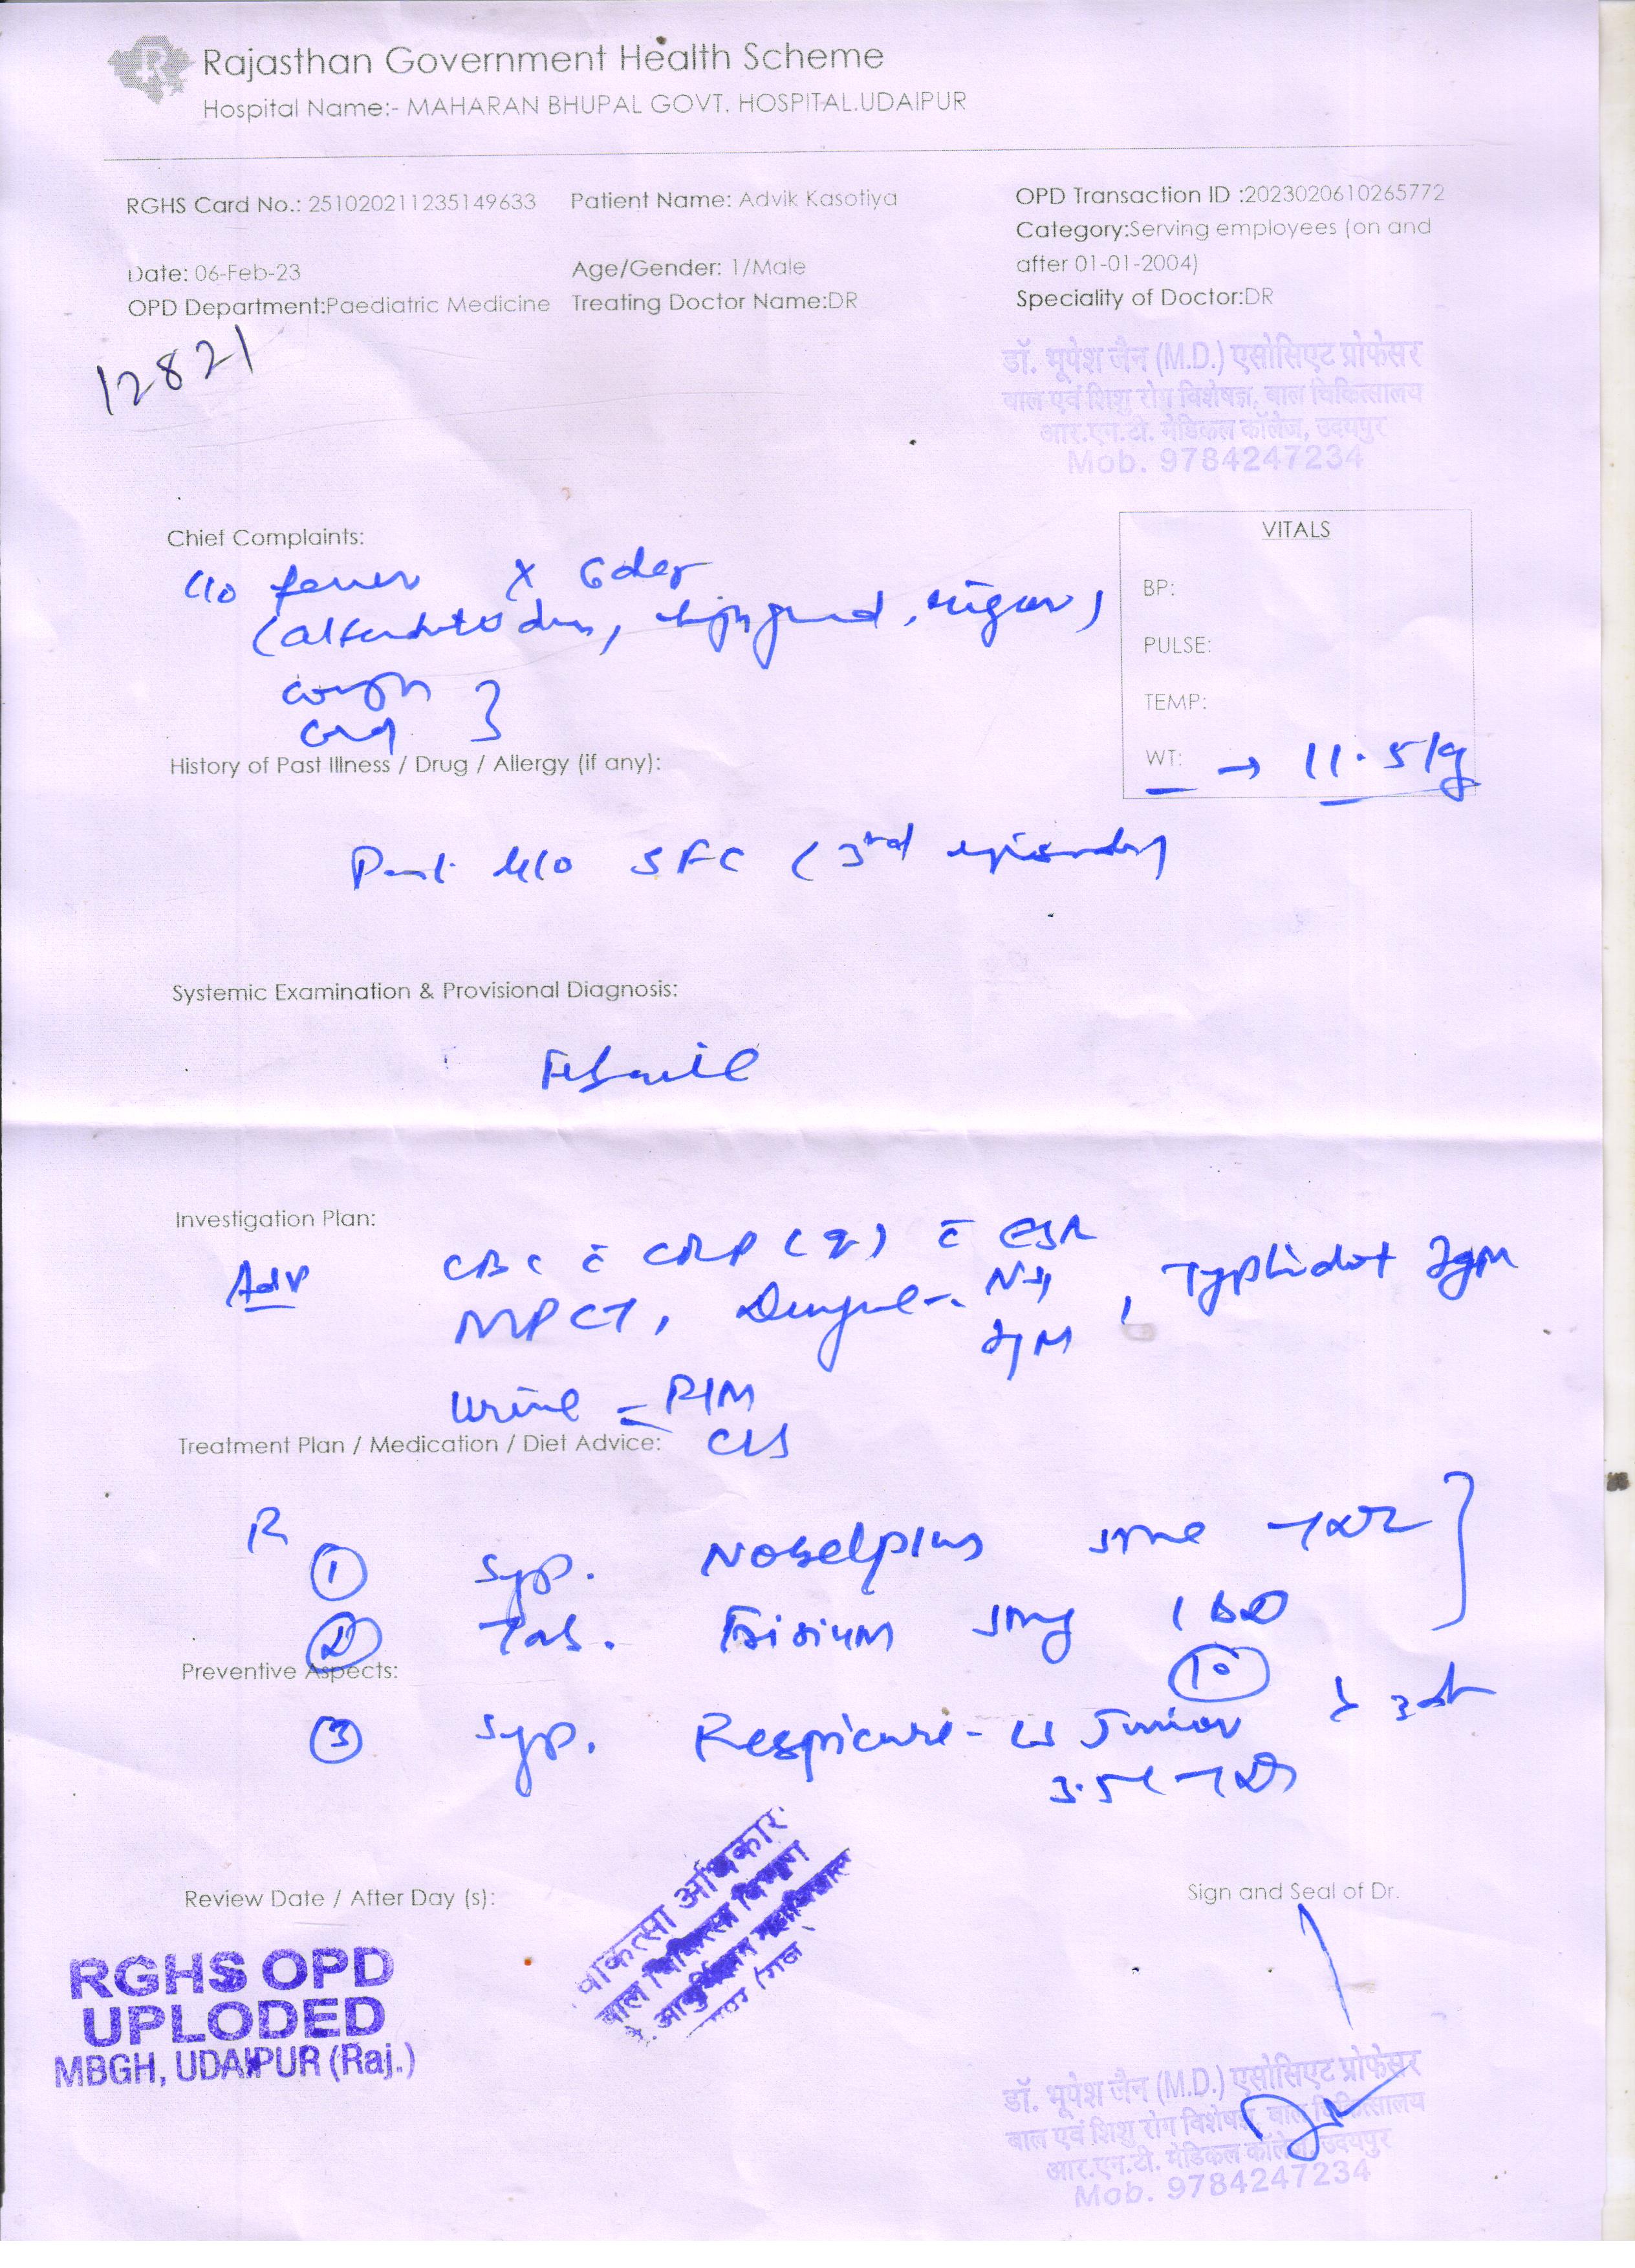 Rajasthan Government Health Scheme
Hospital Name:- MAHARAN BHUPAL GOVT. HOSPITAL.UDAIPUR
RGHS Card No.: 251020211235149633 Patient Name: Advik Kasotiya OPD Transaction ID :2023020610265772
Category:Serving employees (on and
Date: 06-Feb-23 Age/Gender: 1/Male after 01-01-2004)
OPD Department:Paediatric Medicine Treating Doctor Name:DR Speciality of Doctor:DR
12821
डॉ. भूपेश जैन (M.D.) एसोसिएट प्रोफेसर
बाल एवं शिशु रोग विशेषज्ञ, बाल चिकित्सालय
आर.एन.टी. मेडिकल कॉलेज, उदयपुर
Mob. 9784247234
VITALS
Chief Complaints:
c/o fever x 6 day
BP:
PULSE:
cough }
TEMP:
WT: → 11.5 kg
History of Past Illness / Drug / Allergy (if any):
Past H/o SFC (3rd episode)
Systemic Examination & Provisional Diagnosis:
Febrile
Investigation Plan:
Adv CBC c̄ CRP (q) c̄ ESR
MPCT, Dengue - NS1 IgM, Typhidot IgM
Urine - R/M
C/S
Treatment Plan / Medication / Diet Advice:
R
① Syp. Nobelplus 5ml
② Tab. Frisium 5mg 1 BD
⑩
Preventive Aspects:
③ Syp. Respicure-LS Junior
3.5ml TDS
Review Date / After Day (s):
Sign and Seal of Dr.
RGHS OPD
UPLODED
MBGH, UDAIPUR (Raj.)
डॉ. भूपेश जैन (M.D.) एसोसिएट प्रोफेसर
बाल एवं शिशु रोग विशेषज्ञ, बाल चिकित्सालय
आर.एन.टी. मेडिकल कॉलेज, उदयपुर
Mob. 9784247234